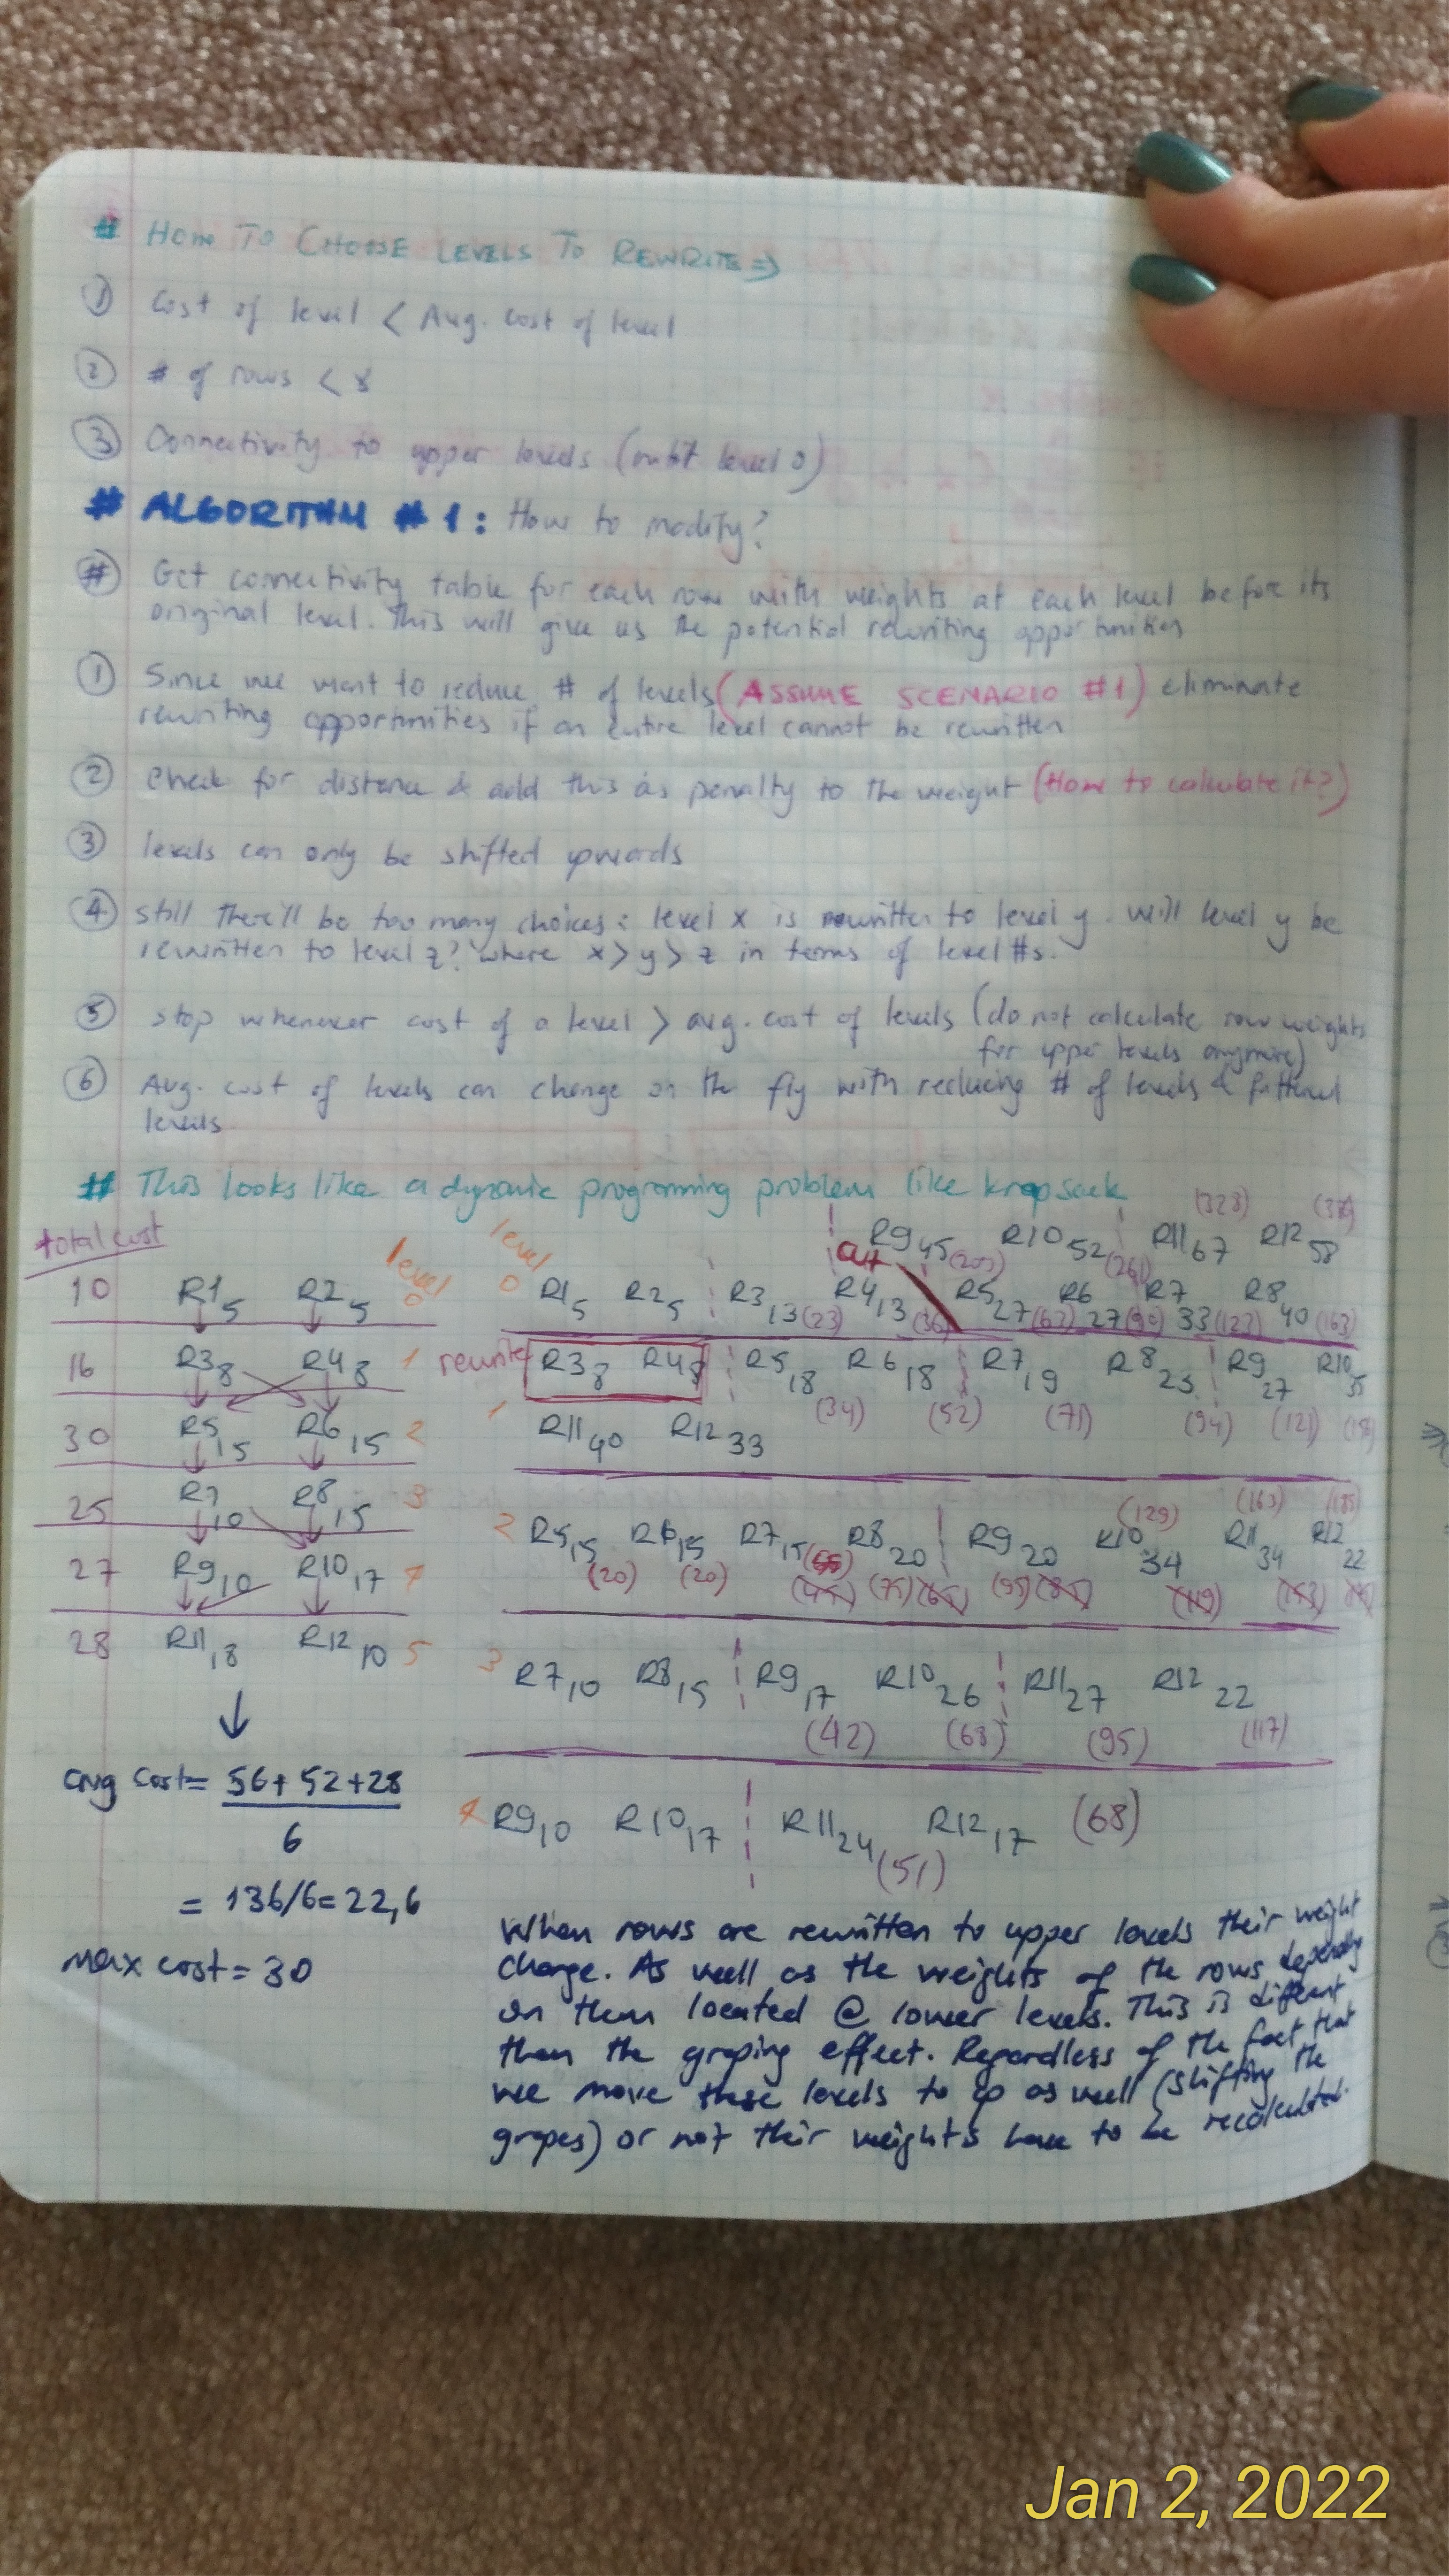 # HOW TO CHOOSE LEVELS TO REWRITE ⇒
① Cost of level < Avg. cost of level
② # of rows < 8
③ Connectivity to upper levels (not level 0)
# ALGORITHM #1: How to modify?
# Get connectivity table for each row with weights at each level before its
original level. This will give us the potential rewriting opportunities
① Since we want to reduce # of levels (ASSUME SCENARIO #1) eliminate
rewriting opportunities if an entire level cannot be rewritten
② Check for distance & add this as penalty to the weight (How to calculate it?)
③ levels can only be shifted upwards
④ still there'll be too many choices: level x is rewritten to level y. will level y be
rewritten to level z? where x > y > z in terms of level #s.
⑤ stop whenever cost of a level > avg. cost of levels (do not calculate row weights
for upper levels anymore)
⑥ Avg. cost of levels can change on the fly with reducing # of levels &
levels
# This looks like a dynamic programming problem like knapsack
total cost
level
10 R1 5 R2 5 0
16 R3 8 R4 8 1
30 R5 15 R6 15 2
25 R7 10 R8 15 3
27 R9 10 R10 17 4
28 R11 18 R12 10 5
↓
avg cost = 56+52+28
6
= 136/6 = 22,6
max cost = 30
level
(323)
R9 45 (203) R10 52 (261) R11 67 R12 58
cut
0 R1 5 R2 5 R3 13 (23) R4 13 (36) R5 27 (63) R6 27 (90) R7 33 (123) R8 40 (163)
rewrite R3 8 R4 8 R5 18 R6 18 R7 19 R8 23 R9 27 R10 35
(34) (52) (71) (94) (121)
1 R11 40 R12 33
(129) (163) (185)
2 R5 15 R6 15 R7 15 R8 20 R9 20 R10 34 R11 34 R12 22
(20) (20) (75) (95)
3 R7 10 R8 15 R9 17 R10 26 R11 27 R12 22
(42) (68) (95) (117)
4 R9 10 R10 17 R11 24 R12 17 (68)
(51)
When rows are rewritten to upper levels their weight
change. As well as the weights of the rows depending
on them located @ lower levels. This is diffent
than the groping effect. Regardless of the fact that
we move these levels to up as well (shifting the
gropes) or not their weights have to be recalculated.
Jan 2, 2022